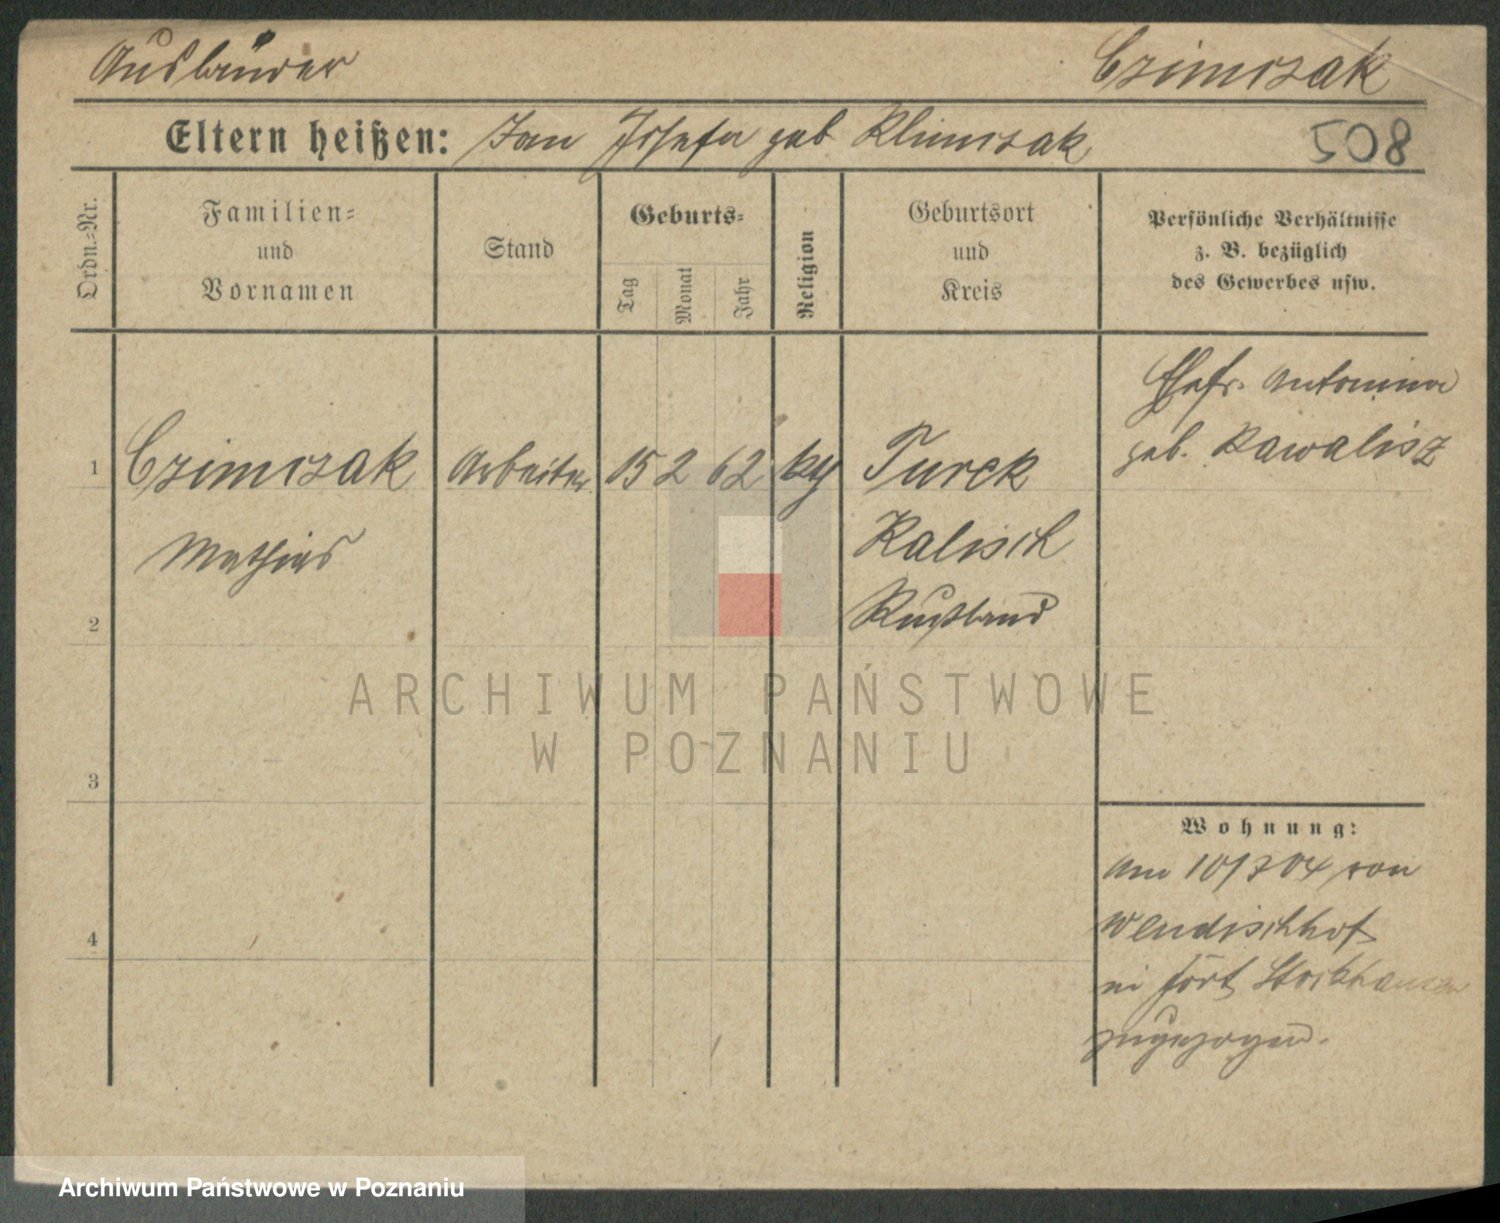 Ausländer Czimczak
Eltern heißen: Jan Josefa geb Klimczak 508
Ordn.-Nr.
Familien-
und
Vornamen
Stand
Geburts-
Tag Monat Jahr
Religion
Geburtsort
und
Kreis
Persönliche Verhältnisse
z. B. bezüglich
des Gewerbes usw.
Ehefr. Antonina
geb. Kawalisz
1 Czimczak Arbeiter 15 2 62 kg Turek
Mathias Kalisch
2 Rußland
ARCHIWUM PAŃSTWOWE
W POZNANIU
3
Wohnung:
Am 10/7 04 von
4 Wendischhof
in Fort Stockhausen
zugezogen.
Archiwum Państwowe w Poznaniu